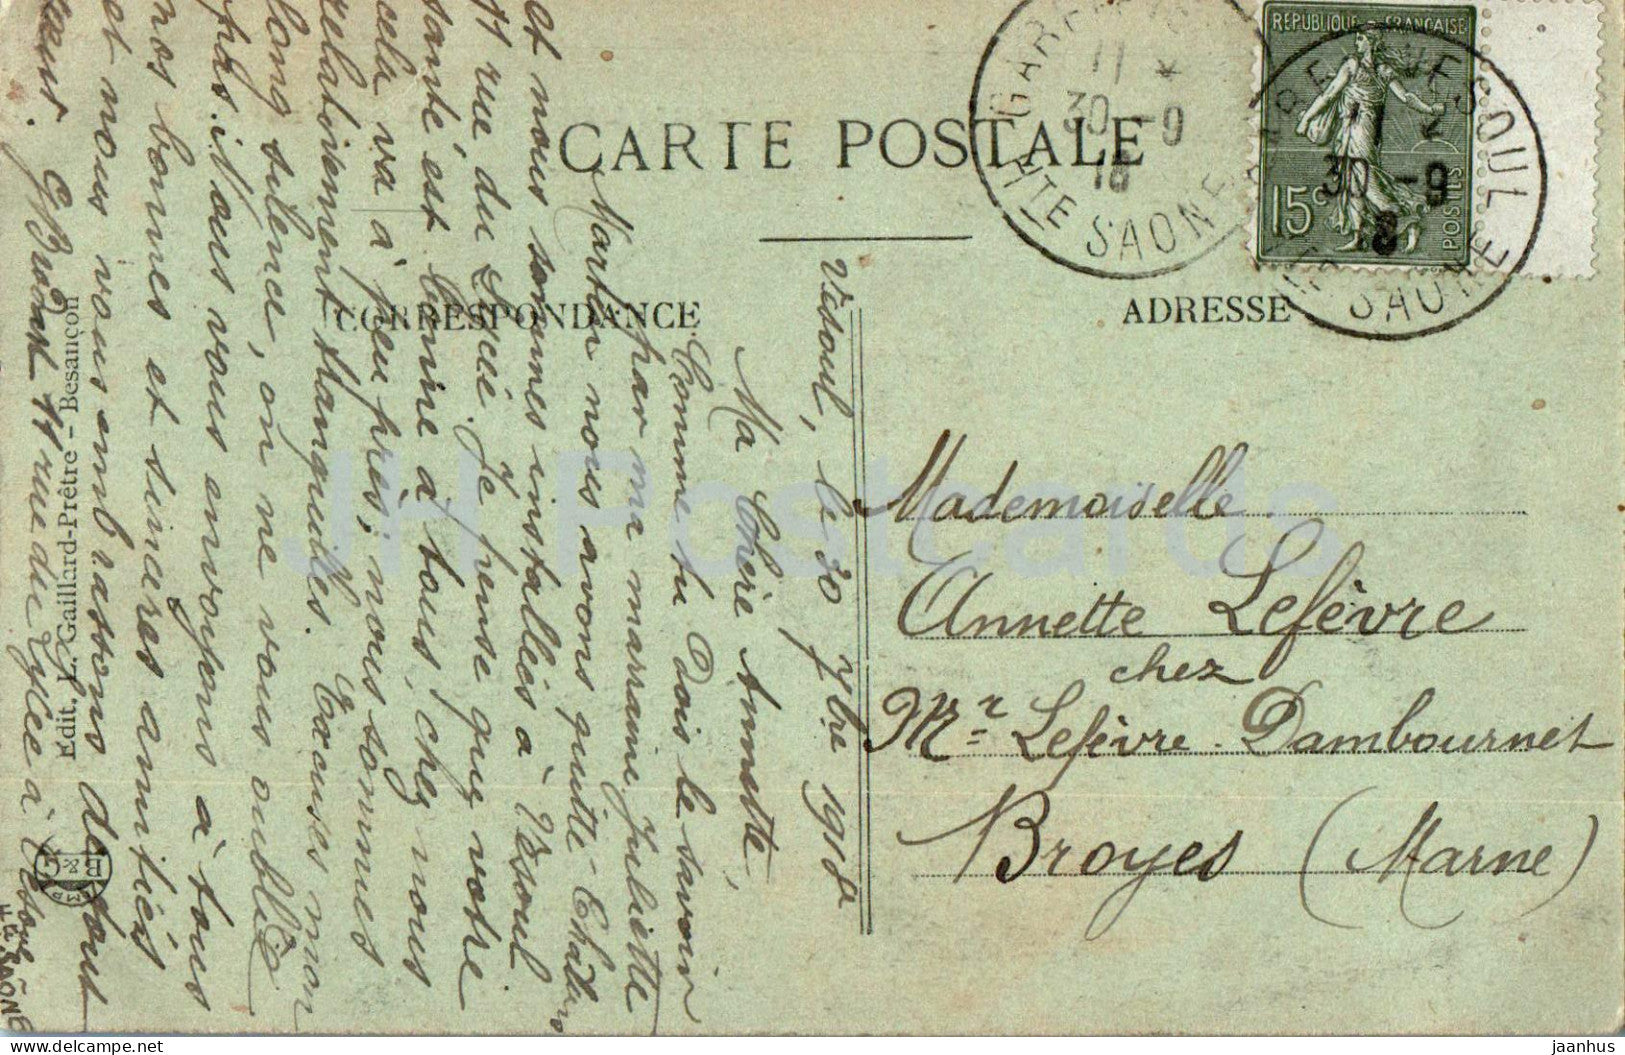 CARTE POSTALE
CORRESPONDANCE
ADRESSE
REPUBLIQUE FRANÇAISE
15c
POSTES
GARE
11 *
30 -9
18
HTE SAONE
GARE VESOUL
11
30 -9
8
SAONE
Vesoul, le 30 7bre 1918
Ma Chère Annette,
Comme tu dois le savoir
par ma marraine Juliette
Martin nous avons quitté Châlons
et nous sommes installés à Vesoul
11 rue du Lycée. Je pense que votre
santé est bonne à tous, chez nous
cela va à peu près; nous sommes
relativement tranquilles. Excuses mon
long silence, on ne vous oublie
pas. Nous vous envoyons à tous
nos bonnes et sincères amitiés
et nous vous embrassons de tout
cœur. 11 rue du Lycée à Vesoul
Hte SAÔNE
Mademoiselle
Annette Lefèvre
chez
Mr Lefèvre-Dambournet
Broyes (Marne)
Edit. L. Gaillard-Prêtre - Besançon
B & G
IMP
JH Postcards
eBay
jaanhus
Delcampe.net